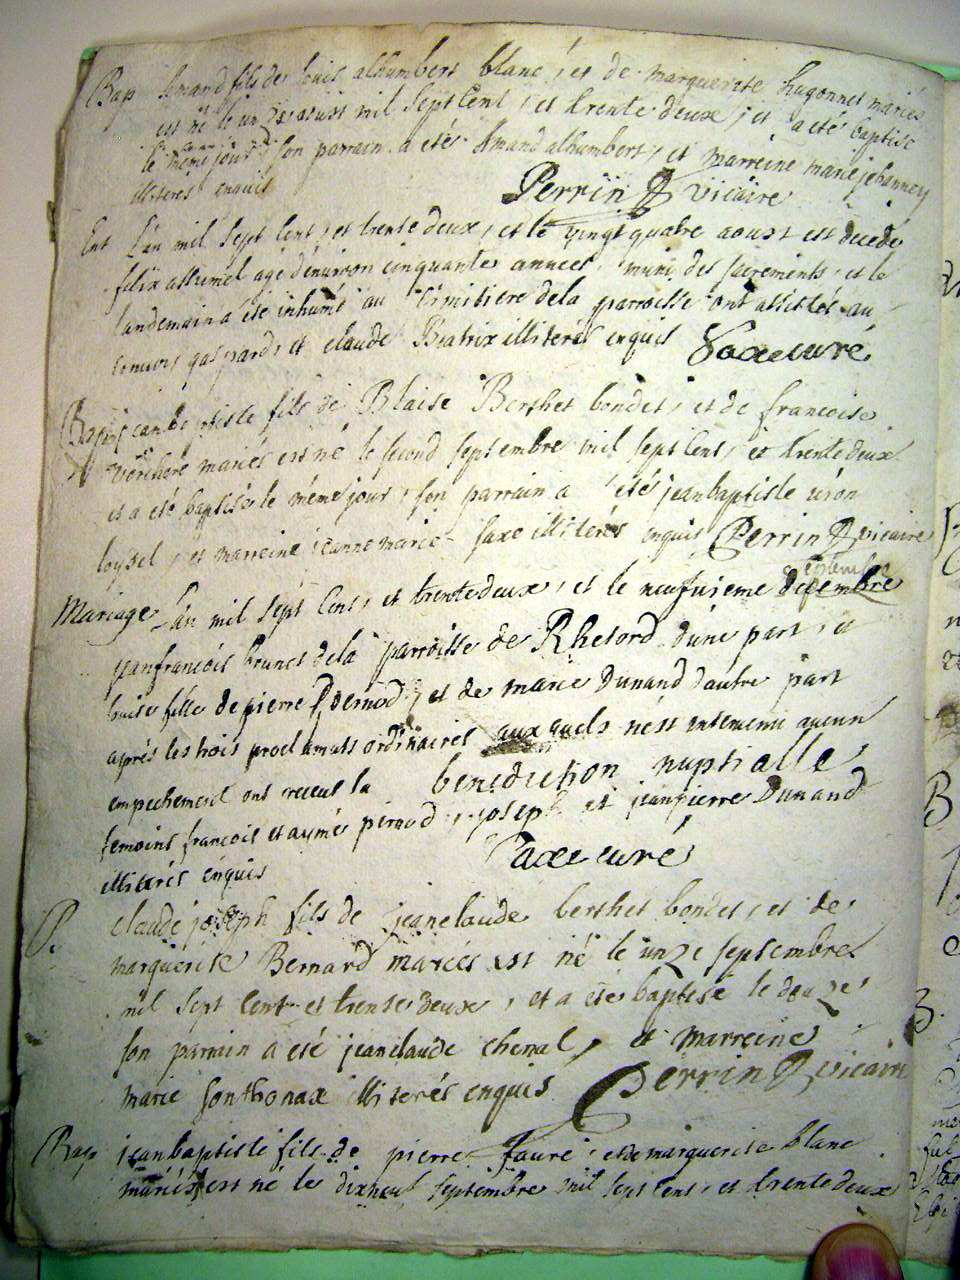 Bap Amand fils de louis alhumbert blanc, et de marguerite hugonnet mariés
est né le un aoust mil sept cent, et trente deux, et a eté baptisé
le même jour, son parrain a eté Amand alhumbert, et marreine marie jehannin
illiterés enquis Perrin vicaire
Ent L'an mil sept cent, et trente deux, et le vingt quatre aoust est decedé
felix allumel agé d'environ cinquante années, muni des sacrements, et le
landemain a été inhumé au cimitiere de la parroisse ont assistés au
convoy gaspard, et claude Beatrix illiterés enquis Saxe curé
Bap jean baptiste fils de Blaise Berthet bondet, et de francoise
mariés est né le second septembre mil sept cent, et trente deux
et a été baptisé le même jour, son parrain a été jean baptiste
loysel, et marreine jeanne marie saxe illiterés enquis Perrin vicaire
septembre
Mariage L'an mil sept cent, et trente deux, et le neufuieme decembre
jean francois brunet de la parroisse de Rhetord d'une part, a
louise fille de pierre Pernod, et de marie Dunand d'autre part
après les trois proclamats ordinaires auxquels n'est intervenu aucun
empechement ont receut la benediction nuptialle,
temoins francois et aymé pernod, joseph et jean pierre Dunand
illiterés enquis Saxe curé
B. claude joseph fils de jean claude berthet bondet, et de
marguerite Bernard mariés est né le unze septembre
mil sept cent et trente deux, et a eté baptisé le douze,
son parrain a eté jean claude chenal, et marreine
marie sonthonax illiterés enquis Perrin vicaire
Bap jean baptiste fils de pierre faure, et de marguerite blanc
mariés est né le dixheut septembre mil sept cent, et trente deux